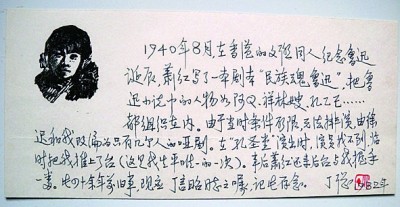 1940年8月,在香港的文艺同人纪念鲁迅
诞辰,萧红写了一本剧本"民族魂鲁迅",把鲁
迅小说中的人物如阿Q、祥林嫂、孔乙己……
都组织在内。由于当时条件所限,无法排演,由徐
迟和我改编为只有几个人的哑剧。在"孔圣堂"演出时,演员找不到,临
时把我推上了台(这是我生平唯一的一次)。事后萧红还来后台与我握手
一叠。四十余年前旧事,现应丁言昭同志之嘱,记此存念。 丁聪